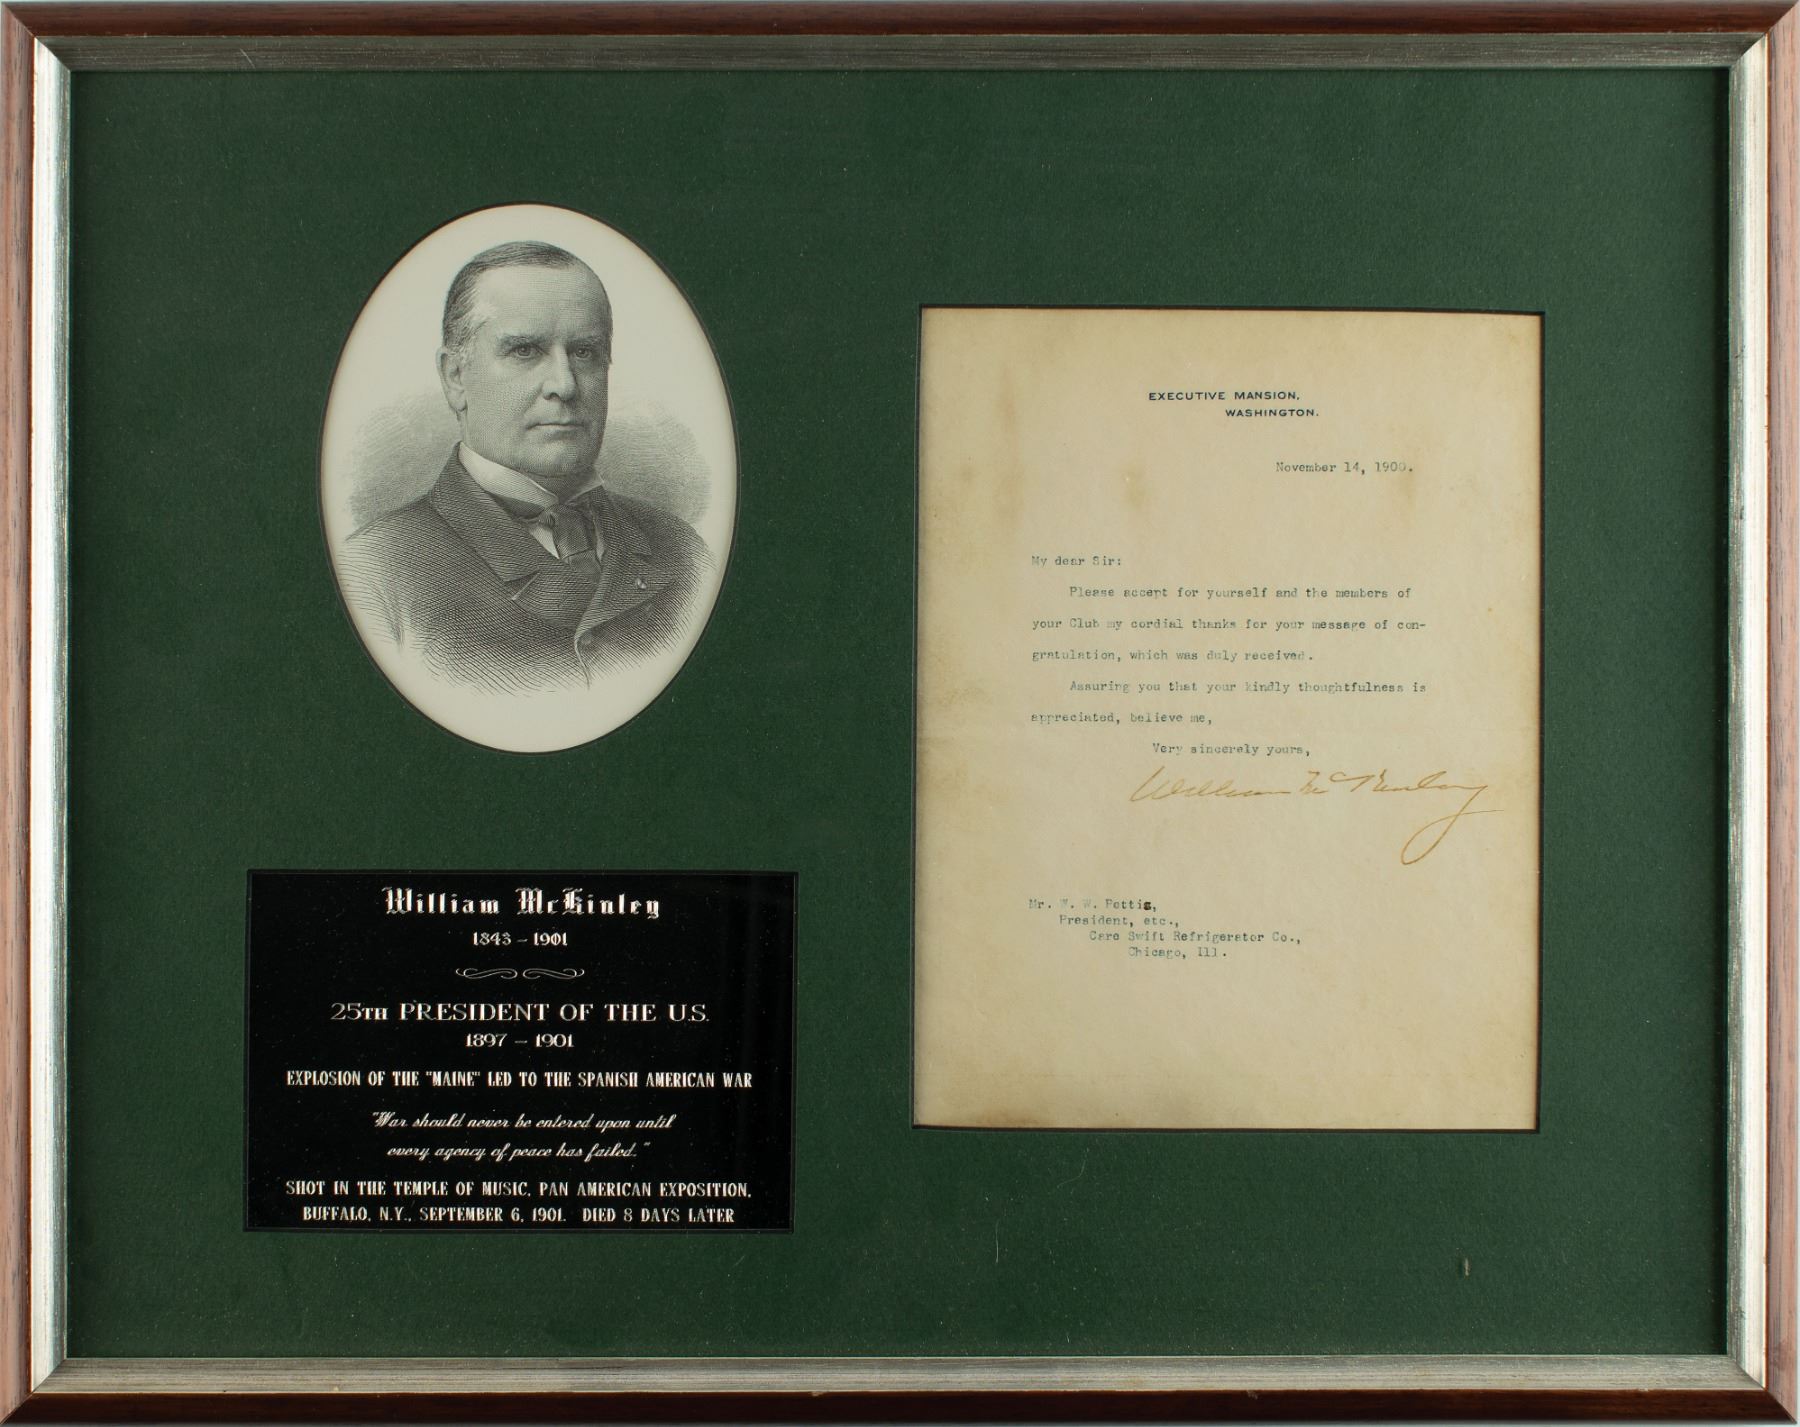 William McKinley
1843 – 1901
25TH PRESIDENT OF THE U.S.
1897 – 1901
EXPLOSION OF THE "MAINE" LED TO THE SPANISH AMERICAN WAR
"War should never be entered upon until
every agency of peace has failed."
SHOT IN THE TEMPLE OF MUSIC, PAN AMERICAN EXPOSITION,
BUFFALO, N.Y., SEPTEMBER 6, 1901. DIED 8 DAYS LATER
EXECUTIVE MANSION,
WASHINGTON.
November 14, 1900.
My dear Sir:
Please accept for yourself and the members of
your Club my cordial thanks for your message of con-
gratulation, which was duly received.
Assuring you that your kindly thoughtfulness is
appreciated, believe me,
Very sincerely yours,
William McKinley
Mr. W. W. Pettis,
President, etc.,
Care Swift Refrigerator Co.,
Chicago, Ill.